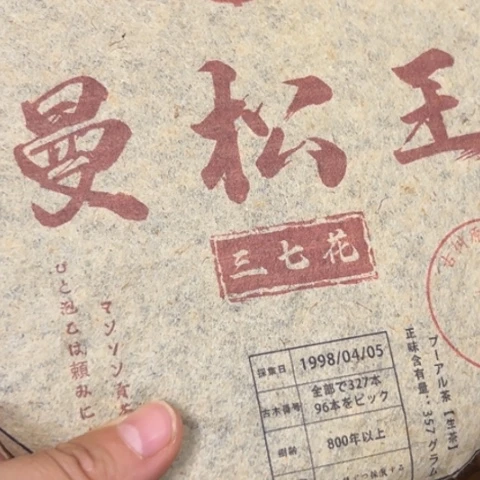 曼松王
三七花
マンソン貢茶
ひと泡とは頼みに
採集日 1998/04/05
古木番号 全部で327本
96本をピック
樹齢 800年以上
プーアル茶【生茶】
正味含有量：357グラム